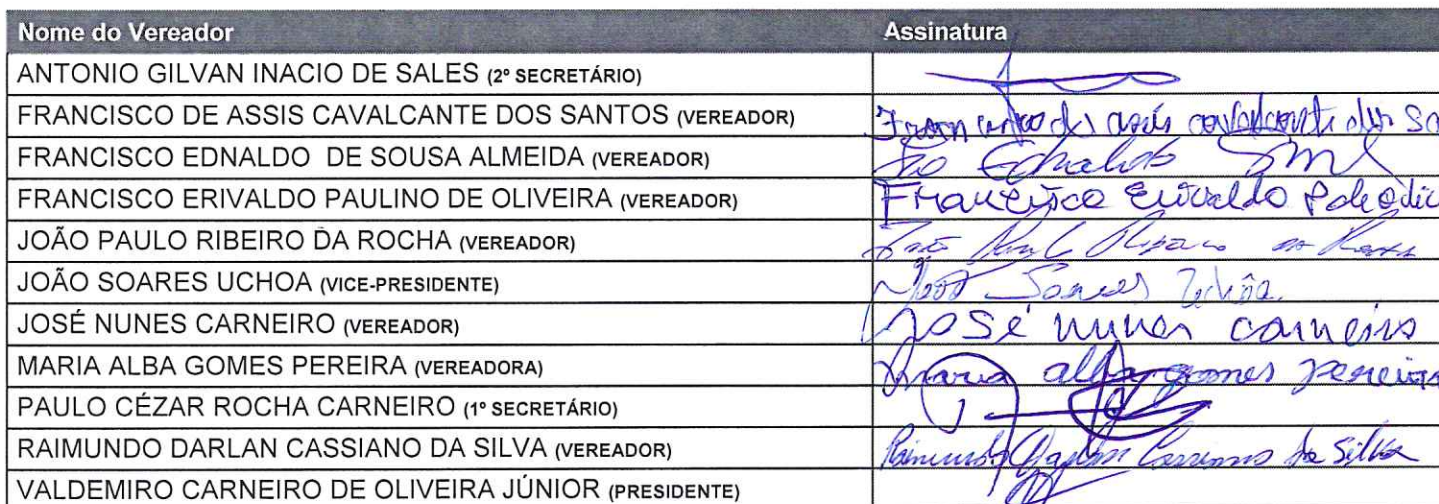 Nome do Vereador Assinatura
ANTONIO GILVAN INACIO DE SALES (2º SECRETÁRIO)
FRANCISCO DE ASSIS CAVALCANTE DOS SANTOS (VEREADOR)
FRANCISCO EDNALDO DE SOUSA ALMEIDA (VEREADOR) Ednaldo
FRANCISCO ERIVALDO PAULINO DE OLIVEIRA (VEREADOR) Erivaldo
JOÃO PAULO RIBEIRO DA ROCHA (VEREADOR)
JOÃO SOARES UCHOA (VICE-PRESIDENTE) Soares
JOSÉ NUNES CARNEIRO (VEREADOR) José nunes carneiro
MARIA ALBA GOMES PEREIRA (VEREADORA) maria alba gomes pereira
PAULO CÉZAR ROCHA CARNEIRO (1º SECRETÁRIO)
RAIMUNDO DARLAN CASSIANO DA SILVA (VEREADOR) Raimundo Darlan Cassiano da Silva
VALDEMIRO CARNEIRO DE OLIVEIRA JÚNIOR (PRESIDENTE)